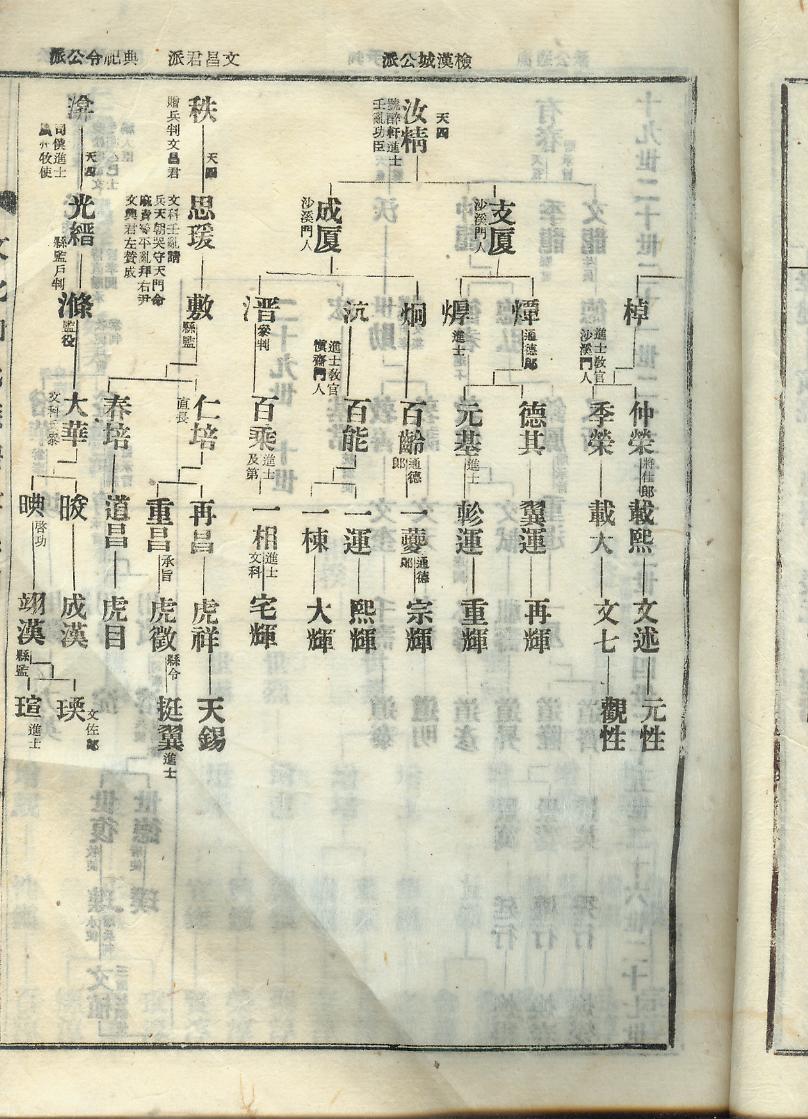 檢漢城公派
文昌君派
典祀令公派
汝精
天四
號醉軒進士
壬亂功臣
支厦
沙溪門人
成厦
沙溪門人
棹
進士敎官
沙溪門人
煙
通德郞
焊
進士
炯
沆
進士敎官
愼齋門人
晋
參判
仲榮
將仕郞
季榮
德其
元基
進士
百齡
通德郞
百能
百乘
進士
及第
載熙
載大
翼運
彰運
一夔
通德郞
一運
一棟
一相
進士
文科
文述
文七
再輝
重輝
宗輝
熙輝
大輝
宅輝
元性
觀性
秩
天四
贈兵判文昌君
思瑗
文科壬亂請
兵天朝哭守天門命
文興君左贊成
敷
縣監
仁培
直長
春培
再昌
重昌
承旨
道昌
虎祥
虎徵
縣令
虎目
天錫
挺翼
進士
天四
司僕進士
光縉
縣監戶判
滌
監役
大華
晙
映
啓功
成漢
翊漢
縣監
瑛
文佐郞
瑄
進士